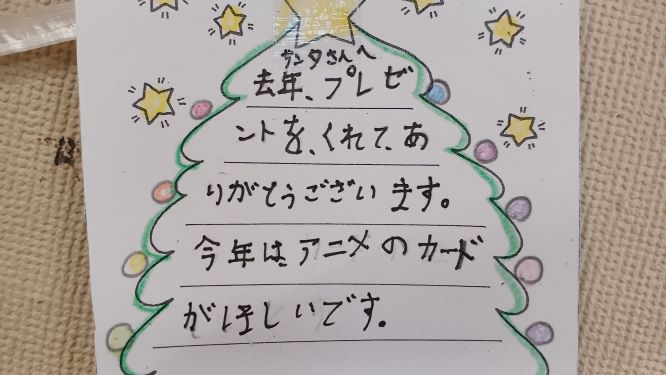 サンタさんへ
去年、プレゼ
ントを、くれて、あ
りがとうございます。
今年は、アニメのカード
がほしいです。